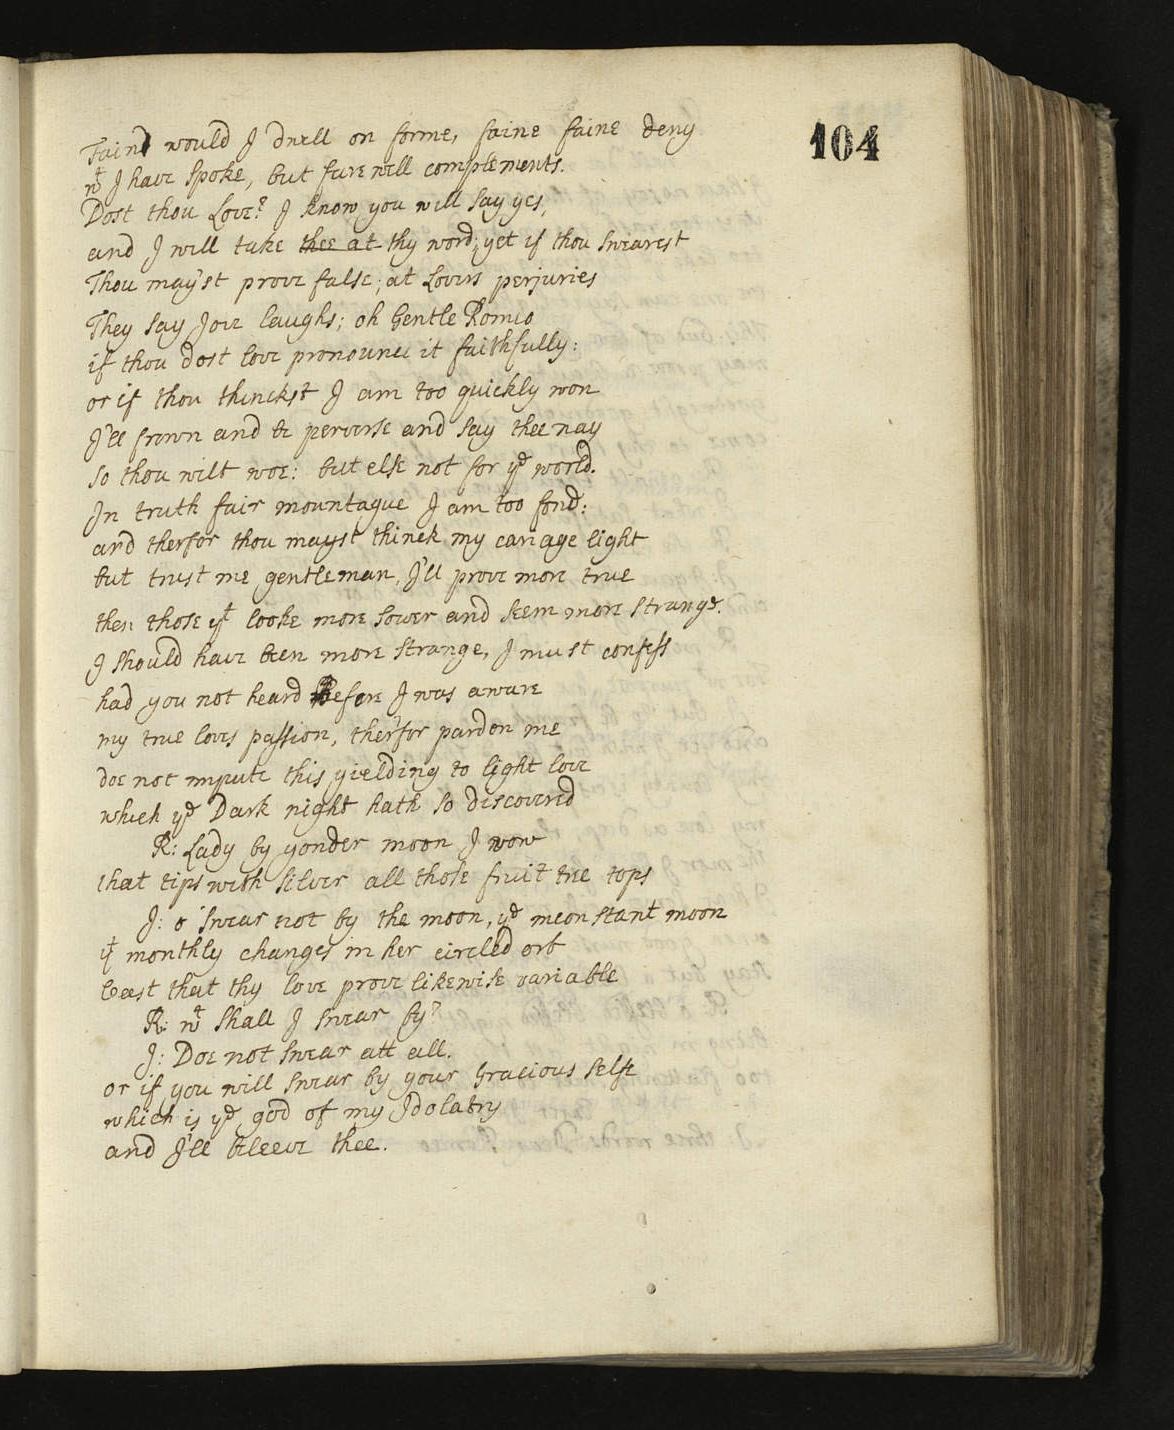 104
Fain would I dwell on forme, faine faine deny
wt I have spoke, but farewell complements.
Dost thou Love? I know you will say yes,
and I will take thee at thy word, yet if thou swearest
Thou may'st prove false; at Lovers perjuries
They say Jove laughs; oh Gentle Romeo
if thou dost love pronounce it faithfully:
or if thou thinckst I am too quickly won
I'll frown and be perverse and say thee nay
so thou wilt woe: but else not for ye world.
In truth fair mountague I am too fond:
and therfor thou mayst thinck my cariage light
but trust me gentleman, I'll prove more true
then those yt looke more sower and seem more strange.
I should have been more strange, I must confess
had you not heard Before I was aware
my true loves passion, therfor pardon me
doe not impute this yielding to light love
which ye Dark night hath so discovered
R: Lady by yonder moon I vow
that tips with silver all those fruit tree tops
J: o swear not by the moon, ye inconstant moon
yt monthly changes in her circled orb
least that thy love prove likewise variable
R: wt shall I swear by?
J: Doe not swear att all.
or if you will swear by your Gracious selfe
which is ye god of my Idolatry
and I'll beleeve thee.